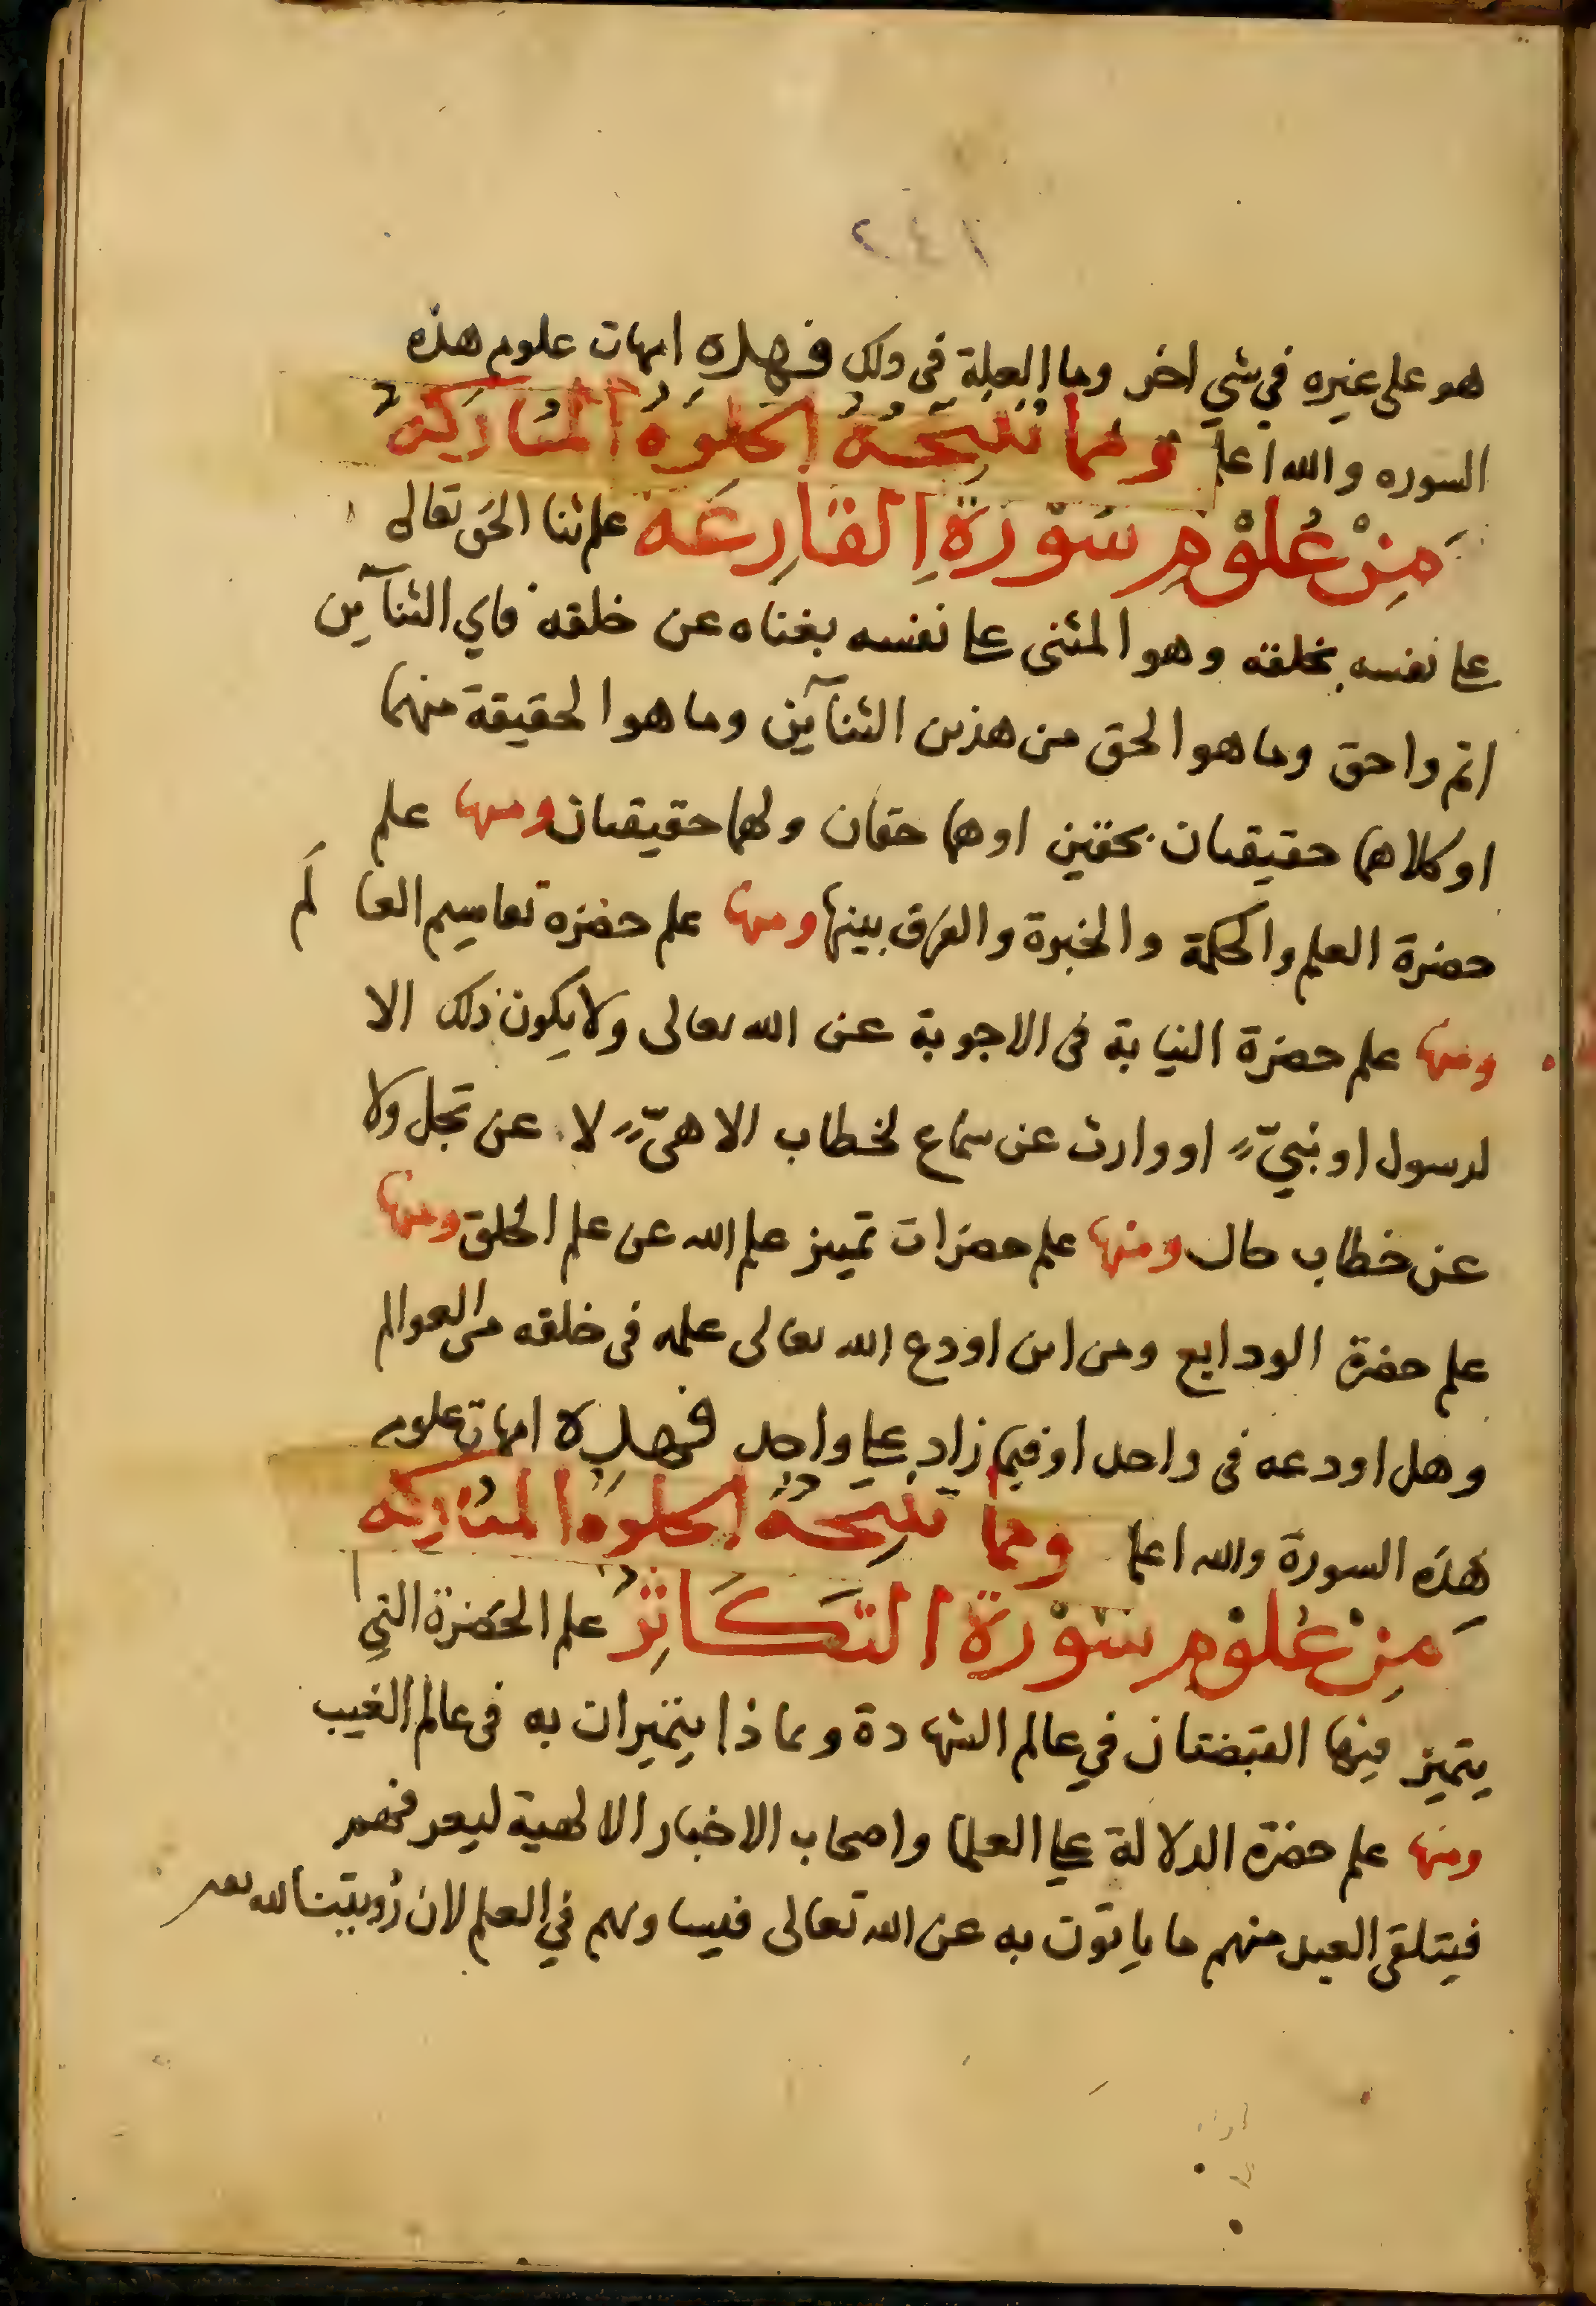 هو على غيره في شي اخر وما العلة في ذلك فهذه امهات علوم هذه
السوره والله اعلم ومما نتيجة الخلوة المباركة
من علوم سورة القارعة علم ثنا الحق تعالى
على نفسه بخلقه وهو المثنى على نفسه بغناه عن خلقه فاي الثنآين
اتم واحق وما هو الحق من هذين الثنآين وما هو الحقيقة منهما
او كلاهما حقيقتان بحقين او هما حقان ولهما حقيقتان ومنها علم
حضرة العلم والحكمة والخبرة والفرق بينها ومنها علم حضره تعاسيم العا لم
ومنها علم حضرة النيابة في الاجوبة عن الله تعالى ولا يكون ذلك الا
لرسول او نبيّ او وارث عن سماع لخطاب الاهيّ لا عن تجل ولا
عن خطاب حال ومنها علم حضرات تمييز علم الله عن علم الخلق ومنها
علم حضرة الودايع ومن اين اودع الله تعالى علمه في خلقه من العوالم
وهل اودعه في واحد او فيما زاد على واحد فهذه امهات علوم
هذه السورة والله اعلم ومما نتيجة الخلوة المباركة
من علوم سورة التكاثر علم الحضرة التي
يتميز فيها القبضتان في عالم الشهادة وبماذا يتميزان به في عالم الغيب
ومنها علم حضرة الدلالة على العلما واصحاب الاخبار الالهية ليعرفهم
فيتلقى العبد منهم ما ياتون به عن الله تعالى فيساويهم في العلم لان رؤيتنا لله